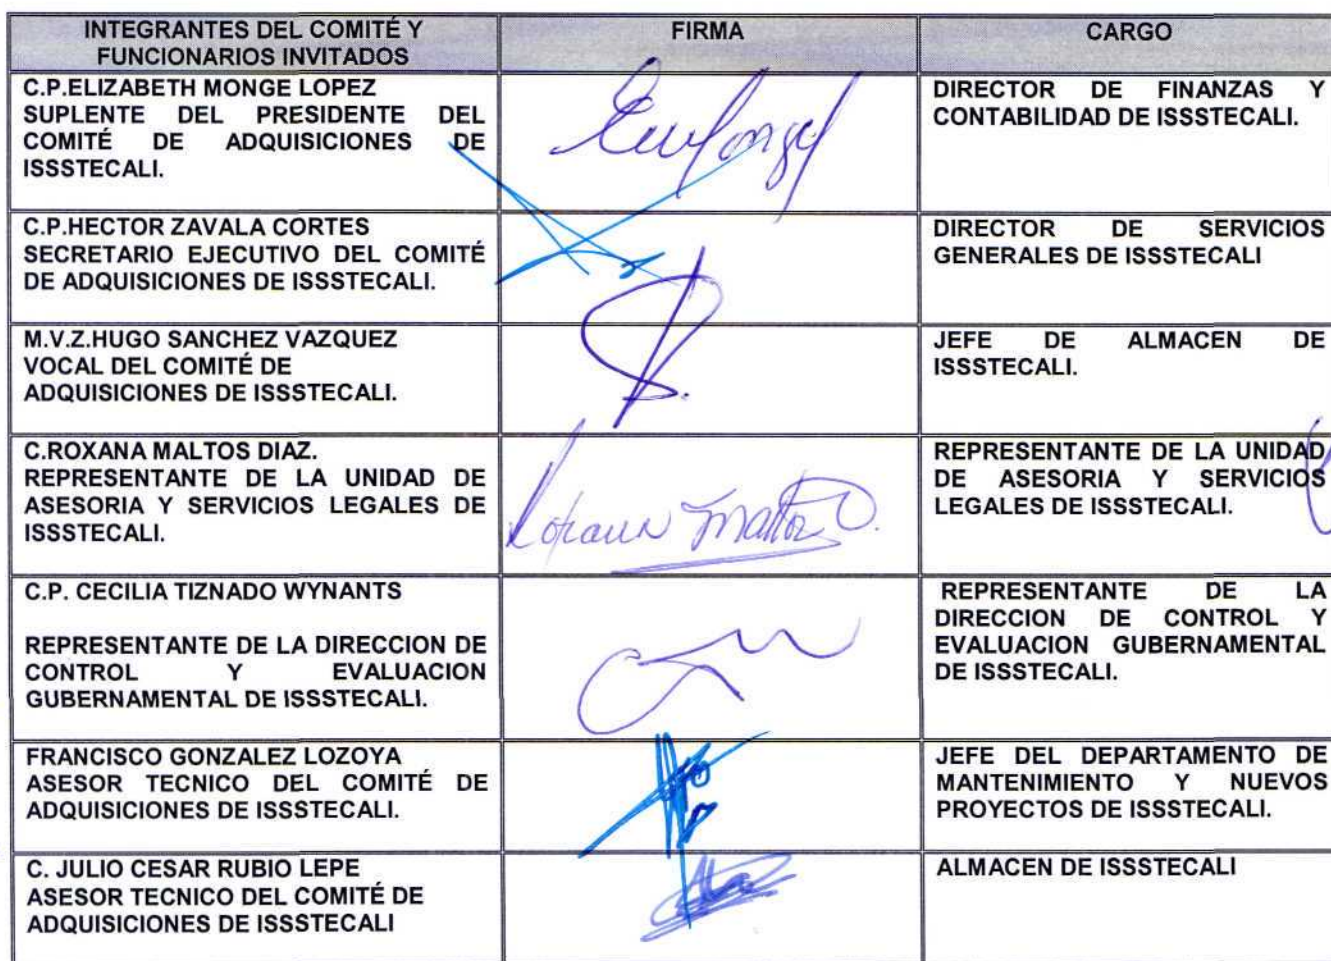 INTEGRANTES DEL COMITÉ Y
FUNCIONARIOS INVITADOS
FIRMA
CARGO
C.P.ELIZABETH MONGE LOPEZ
SUPLENTE DEL PRESIDENTE DEL
COMITÉ DE ADQUISICIONES DE
ISSSTECALI.
DIRECTOR DE FINANZAS Y
CONTABILIDAD DE ISSSTECALI.
C.P.HECTOR ZAVALA CORTES
SECRETARIO EJECUTIVO DEL COMITÉ
DE ADQUISICIONES DE ISSSTECALI.
DIRECTOR DE SERVICIOS
GENERALES DE ISSSTECALI
M.V.Z.HUGO SANCHEZ VAZQUEZ
VOCAL DEL COMITÉ DE
ADQUISICIONES DE ISSSTECALI.
JEFE DE ALMACEN DE
ISSSTECALI.
C.ROXANA MALTOS DIAZ.
REPRESENTANTE DE LA UNIDAD DE
ASESORIA Y SERVICIOS LEGALES DE
ISSSTECALI.
Roxana Maltos D.
REPRESENTANTE DE LA UNIDAD
DE ASESORIA Y SERVICIOS
LEGALES DE ISSSTECALI.
C.P. CECILIA TIZNADO WYNANTS
REPRESENTANTE DE LA DIRECCION DE
CONTROL Y EVALUACION
GUBERNAMENTAL DE ISSSTECALI.
REPRESENTANTE DE LA
DIRECCION DE CONTROL Y
EVALUACION GUBERNAMENTAL
DE ISSSTECALI.
FRANCISCO GONZALEZ LOZOYA
ASESOR TECNICO DEL COMITÉ DE
ADQUISICIONES DE ISSSTECALI.
JEFE DEL DEPARTAMENTO DE
MANTENIMIENTO Y NUEVOS
PROYECTOS DE ISSSTECALI.
C. JULIO CESAR RUBIO LEPE
ASESOR TECNICO DEL COMITÉ DE
ADQUISICIONES DE ISSSTECALI
ALMACEN DE ISSSTECALI